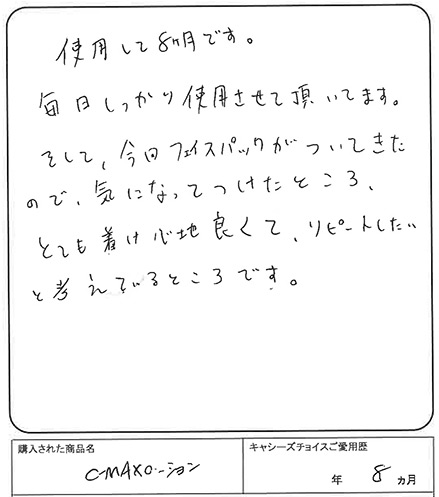 使用して8ヶ月です。
毎日しっかり使用させて頂いてます。
そして、今回フェイスパックがついてきた
ので、気になってつけたところ、
とても着け心地良くて、リピートしたい
と考えているところです。
購入された商品名
C-MAXローション
キャシーズチョイスご愛用歴
年 8 ヵ月